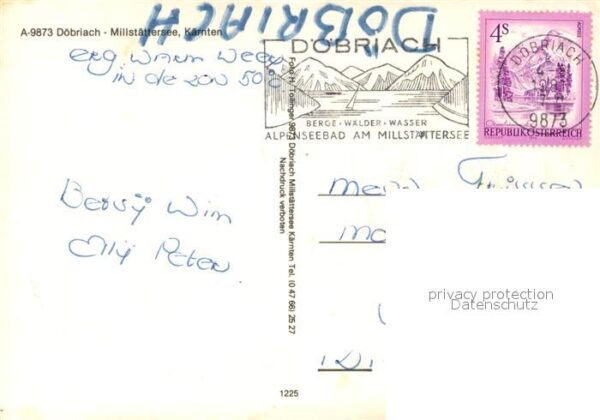 DÖBRIACH
A-9873 Döbriach - Millstättersee, Kärnten
erg warm weer
in de zon 50°
DÖBRIACH
BERGE · WÄLDER · WASSER
ALPENSEEBAD AM MILLSTÄTTERSEE
4S
REPUBLIK ÖSTERREICH
DÖBRIACH
9873
Foto H. Tollinger 9873 Döbriach Millstättersee Kärnten Tel. (0 47 66) 25 27
Nachdruck verboten
Betsy Wim
Elly Peter
privacy protection
Datenschutz
1225